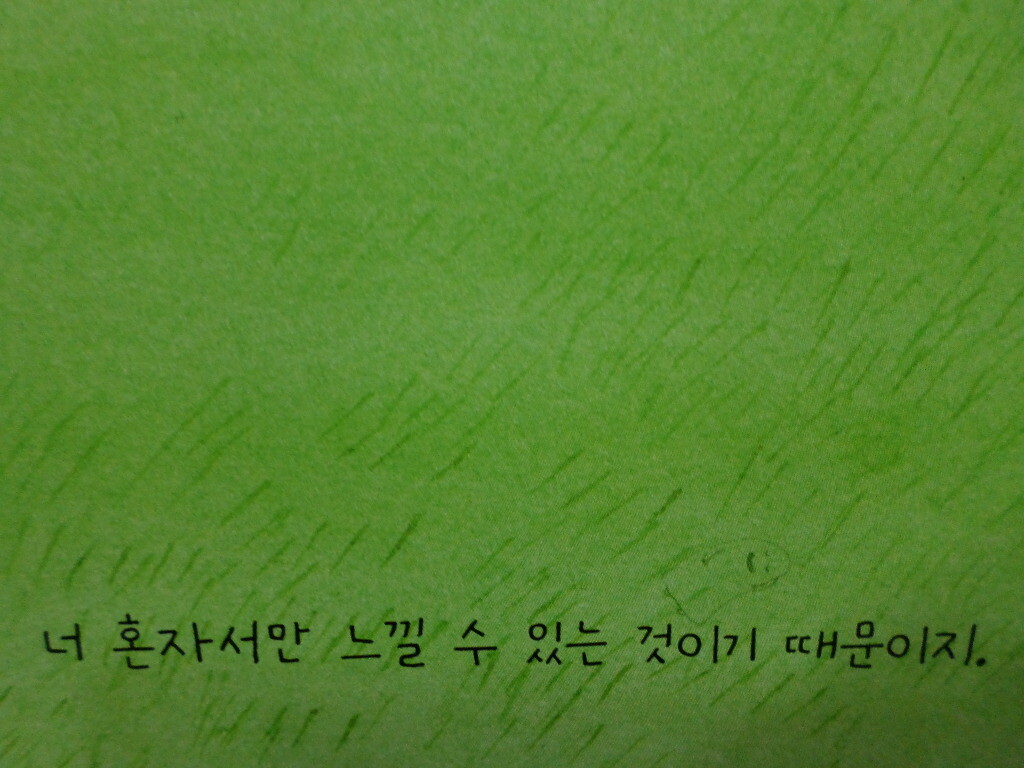 너 혼자서만 느낄 수 있는 것이기 때문이지.